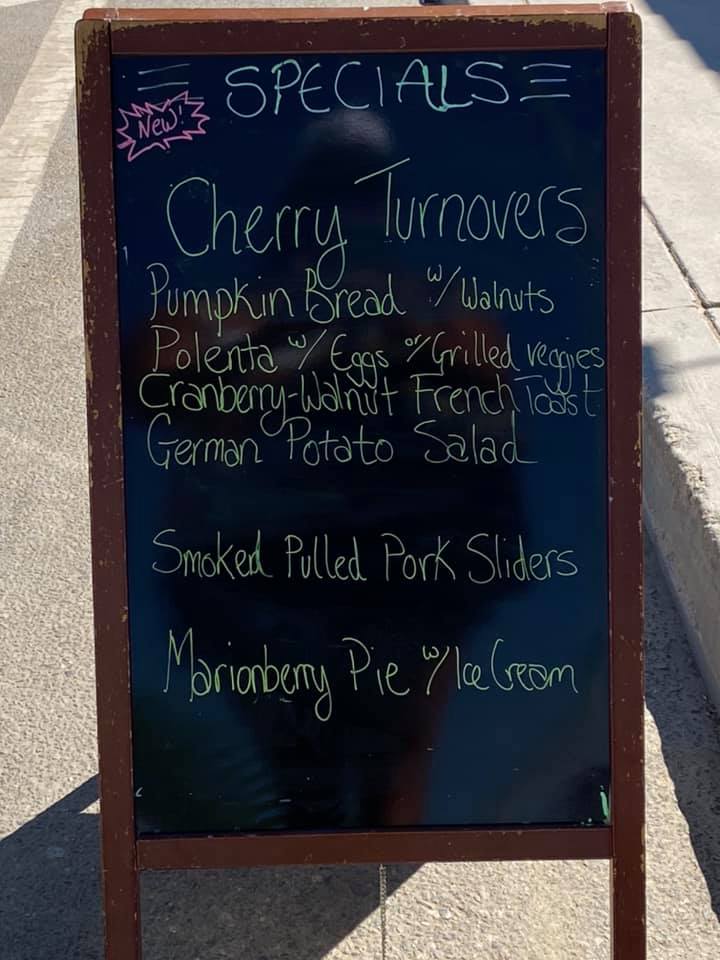 SPECIALS
New!
Cherry Turnovers
Pumpkin Bread w/ Walnuts
Polenta w/ Eggs or/ Grilled veggies
Cranberry-Walnut French Toast
German Potato Salad
Smoked Pulled Pork Sliders
Marionberry Pie w/ Ice Cream